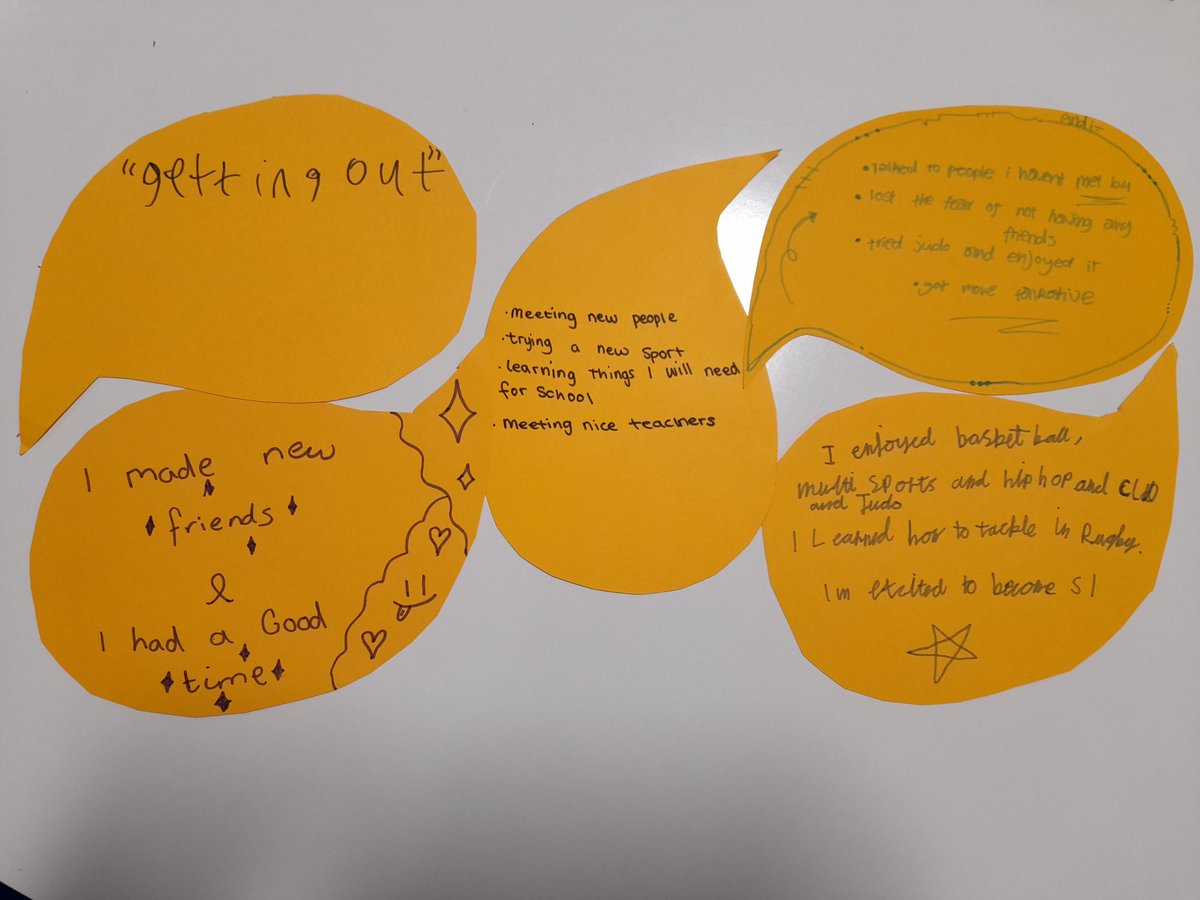 "getting out"
I made new
friends
&
I had a Good
time
• meeting new people
• trying a new sport
• learning things I will need
for school
• meeting nice teachers
• talked to people i havent met by
• lost the fear of not having any
friends
• tried judo and enjoyed it
• got more talkative
I enjoyed basketball,
multi sports and hiphop and CLD
and Judo
I Learned how to tackle in Rugby.
Im excited to become S1